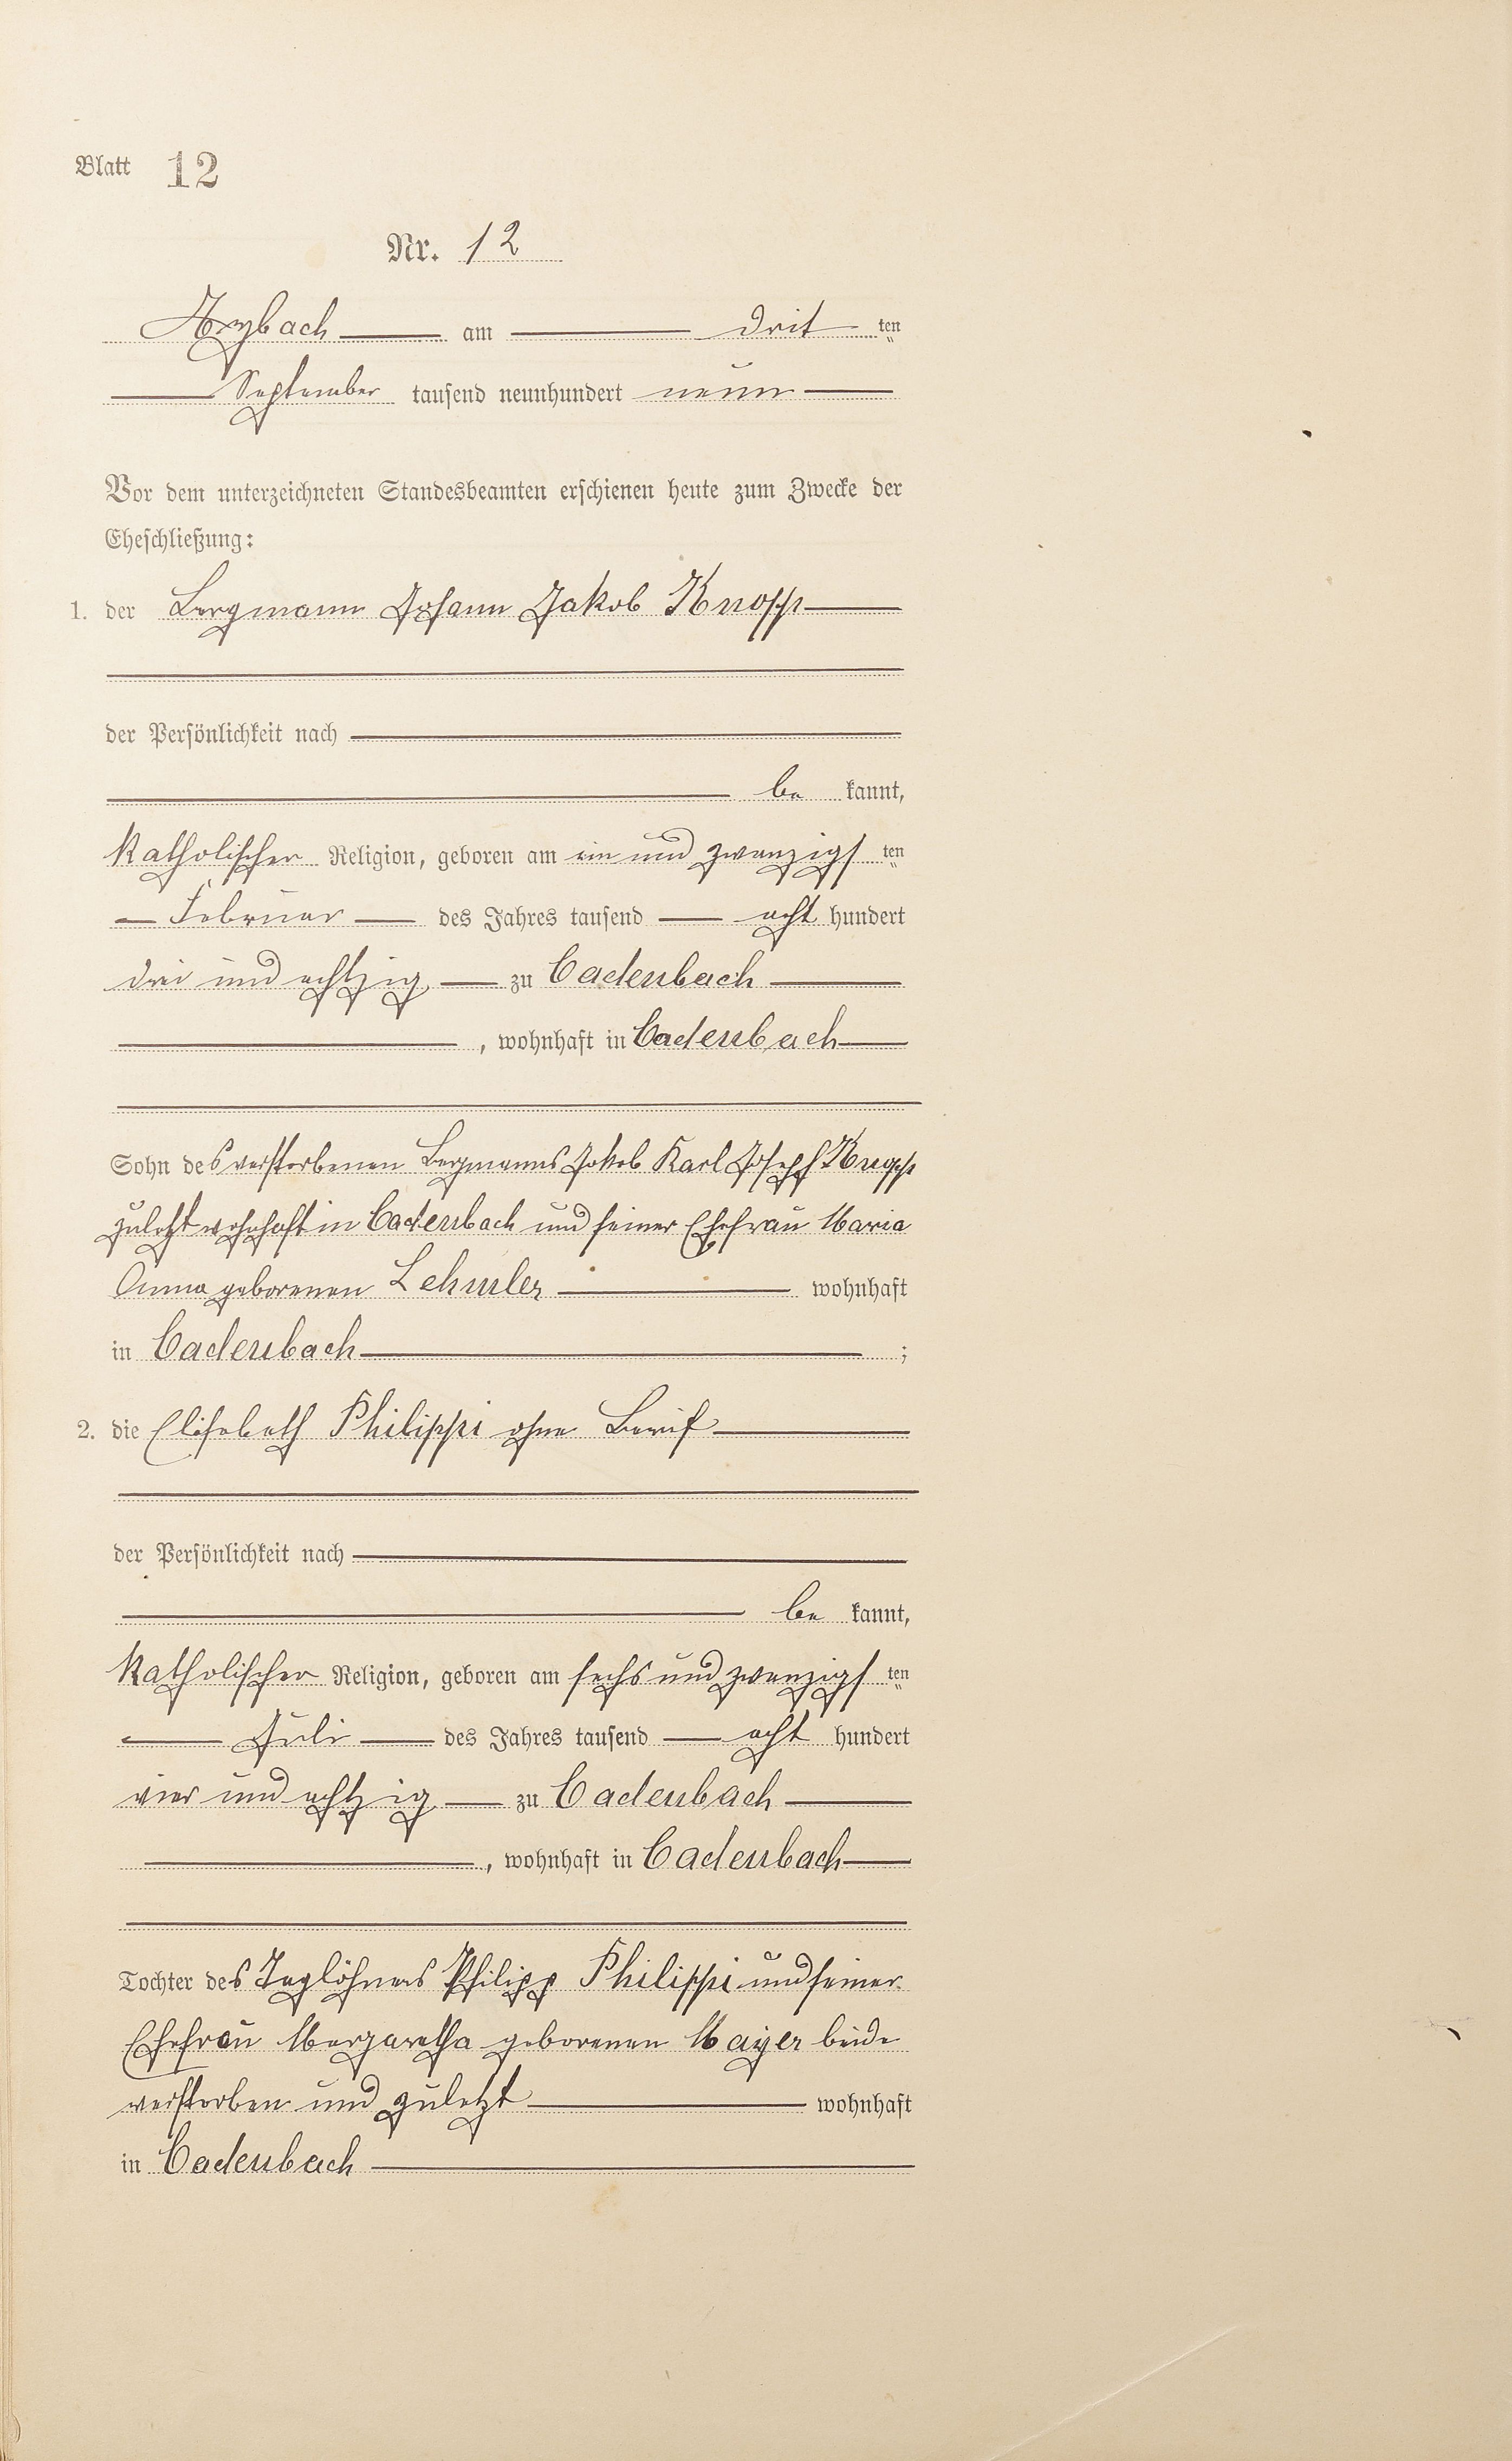 Blatt 12
Nr. 12
Arzbach am drit ten
September tausend neunhundert neun
Vor dem unterzeichneten Standesbeamten erschienen heute zum Zwecke der
Eheschließung:
1. der Bergmann Johann Jakob Knopp
der Persönlichkeit nach
be kannt,
katholischer Religion, geboren am ein und zwanzigs ten
Februar des Jahres tausend acht hundert
drei und achtzig zu Cadenbach
, wohnhaft in Cadenbach
Sohn des verstorbenen Bergmanns Jakob Karl Joseph Knopp
zuletzt wohnhaft in Cadenbach und seiner Ehefrau Maria
Anna geborenen Lehmler wohnhaft
in Cadenbach ;
2. die Elisabeth Philippi ohne Beruf
der Persönlichkeit nach
be kannt,
katholischer Religion, geboren am sechs und zwanzigs ten
Juli des Jahres tausend acht hundert
vier und achtzig zu Cadenbach
, wohnhaft in Cadenbach
Tochter des Taglöhners Philipp Philippi und seiner
Ehefrau Margaretha geborenen Mayer beide
verstorben und zuletzt wohnhaft
in Cadenbach